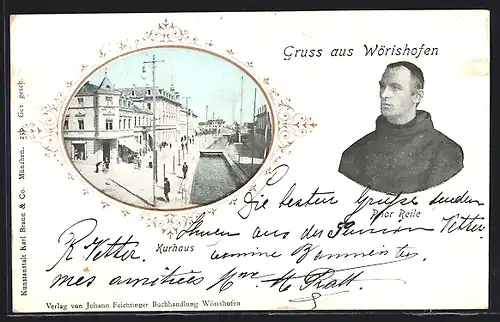 Gruss aus Wörishofen
Prior Reile
Kurhaus
Die besten Grüße senden
Ihnen aus der Pension Vetter
R. Vetter.
mes amitiés Mme
Kunstanstalt Karl Braun & Co. München. Ges. gesch.
Verlag von Johann Feichtinger Buchhandlung Wörishofen